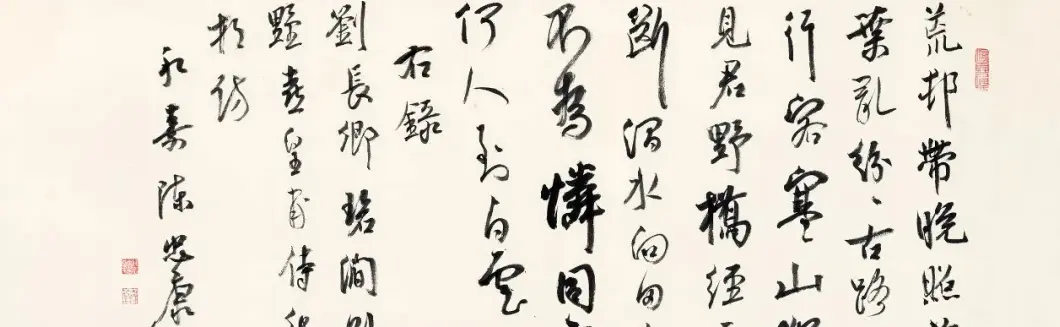 荒邨帶晚照
葉亂紛〻古路
行客寒山
見君野橋經
斷澗水向田
不為憐同
何人到白雲
右錄
劉長卿碧澗別
墅喜皇甫侍
相訪
永嘉陳忠康